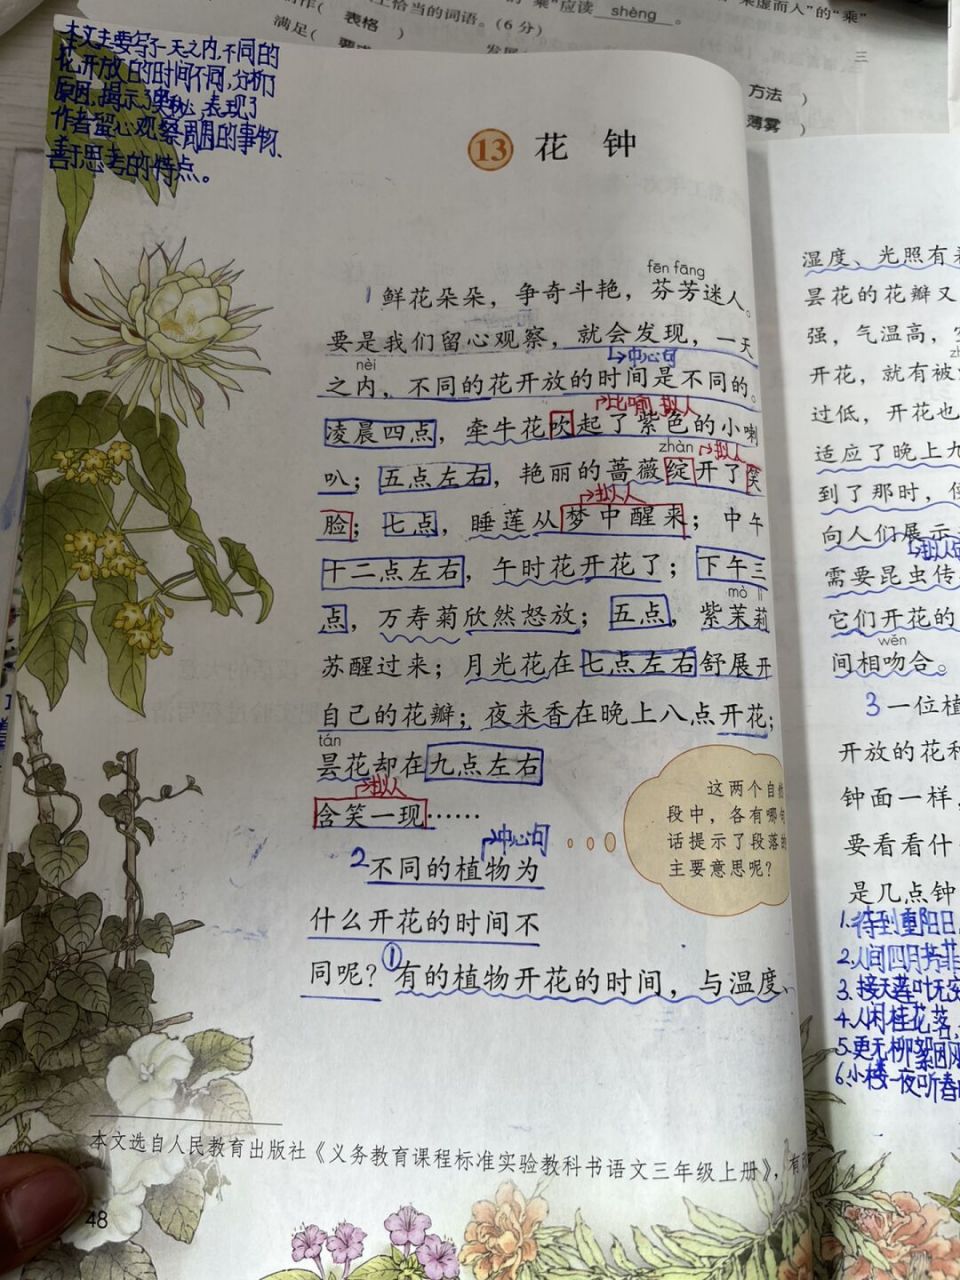 上恰当的词语。(6 分)
应读 shèng 。
满足( 表格 )
方法 )
薄雾 )
本文主要写了一天之内,不同的
花,开放的时间不同,分析了
原因,揭示了奥秘,表现了
作者留心观察周围的事物、
善于思考的特点。
13 花 钟
fēn fāng
1 鲜花朵朵，争奇斗艳，芬芳迷人。
要是我们留心观察，就会发现，一天
中心句
nèi
之内，不同的花开放的时间是不同的。
比喻 拟人
凌晨四点，牵牛花吹起了紫色的小喇
zhàn
拟人
叭；五点左右，艳丽的蔷薇绽开了笑
拟人
脸；七点，睡莲从梦中醒来；中午
十二点左右，午时花开花了；下午三
mò lì
点，万寿菊欣然怒放；五点，紫茉莉
苏醒过来；月光花在七点左右舒展开
自己的花瓣；夜来香在晚上八点开花；
tán
昙花却在九点左右
拟人
含笑一现……
中心句
2 不同的植物为
什么开花的时间不
同呢？①有的植物开花的时间，与温度、
这两个自
段中，各有哪句
话提示了段落的
主要意思呢？
本文选自人民教育出版社《义务教育课程标准实验教科书语文三年级上册》，有
48
湿度、光照有
昙花的花瓣又
强，气温高，
开花，就有被
过低，开花也
适应了晚上九
到了那时，
向人们展示
拟人
需要昆虫传
它们开花的
wěn
间相吻合。
3 一位植
开放的花
钟面一样，
要看看什
是几点钟
1.待到重阳日
2.人间四月芳菲
3.接天莲叶无
4.人闲桂花落
5.更无柳絮因
6.小楼一夜听春